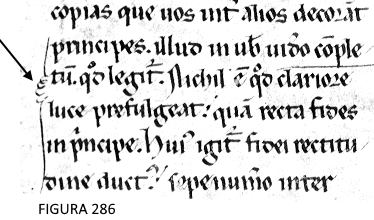 copias que uos int̄ alios decorāt
principes. illud in ub̄ uideo cōple
tū. qđ legit̄. Nichil ē qđ clariore
luce prefulgeat: quā recta fides
in p̄ncipe. Hui' igit̄ fidei rectitu
dine duct' sepenumo inter
FIGURA 286